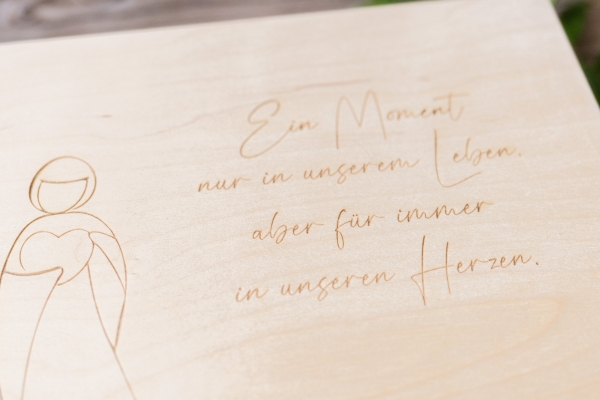 Ein Moment
nur in unserem Leben.
aber für immer
in unseren Herzen.